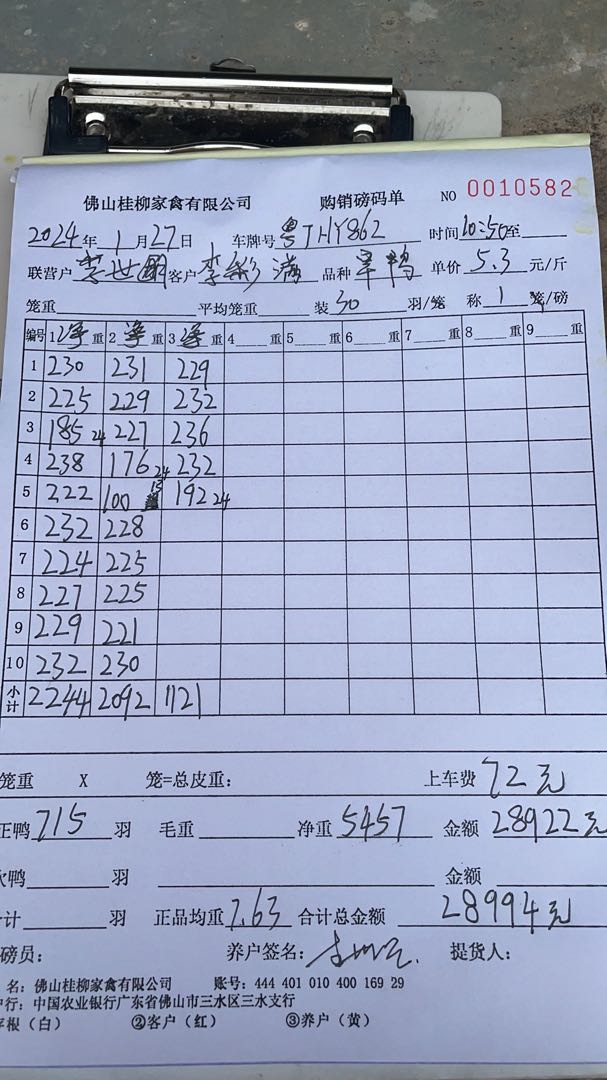 佛山桂柳家禽有限公司 购销磅码单 NO 0010582
2024年 1月27日 车牌号 粤THY862 时间 10:50至
联营户 李世明 客户 李彩满 品种 旱鸭 单价 5.3 元/斤
笼重 平均笼重 装 30 羽/笼 称 1 笼/磅
编号 1 净 重 2 净 重 3 净 重 4 重 5 重 6 重 7 重 8 重 9 重
1 230 231 229
2 225 229 232
3 185 24 227 236
4 238 176 24 232
5 222 100 13 192 24
6 232 228
7 224 225
8 227 225
9 229 221
10 232 230
小计 2244 2092 1121
笼重 X 笼=总皮重: 上车费 72元
正鸭 715 羽 毛重 净重 5457 金额 28922元
次鸭 羽 金额
计 羽 正品均重 7.63 合计总金额 28994元
磅员: 养户签名: 提货人:
名: 佛山桂柳家禽有限公司 账号: 444 401 010 400 169 29
户行: 中国农业银行广东省佛山市三水区三水支行
存根(白) ②客户(红) ③养户(黄)